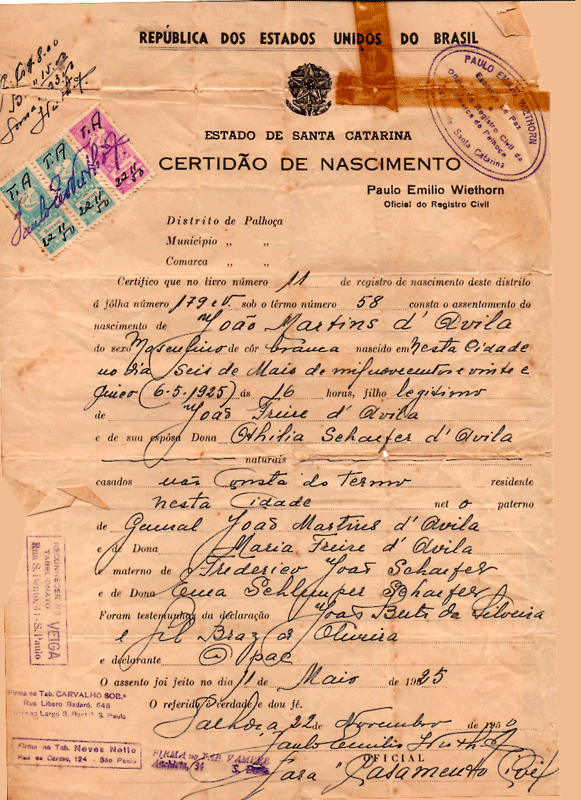 REPÚBLICA DOS ESTADOS UNIDOS DO BRASIL
PAULO EMILIO WIETHORN
Escrivão de Paz
Oficial do Registro Civil da
Comarca de Palhoça
Santa Catarina
T.A T.A T.A
22 11 50 22 11 50 22 11 50
ESTADO DE SANTA CATARINA
CERTIDÃO DE NASCIMENTO
Paulo Emilio Wiethorn
Oficial do Registro Civil
Distrito de Palhoça
Município „ „
Comarca „ „
Certifico que no livro número 11 de registro de nascimento deste distrito
á fôlha número 179 e v. sob o têrmo número 58 consta o assentamento do
nascimento de João Martins d'Avila
do sexo Masculino de côr branca nascido em nesta Cidade
no dia Seis de Maio de mil novecentos e vinte e
cinco (6-5-1925) ás 16 horas, filho legitimo
de João Freire d'Avila
e de sua espôsa Dona Othilia Schaefer d'Avila
naturais
casados não Consta do Termo residente
nesta Cidade neto paterno
de João Martins d'Avila
e de Dona Maria Freire d'Avila
e materno de Frederico João Schaefer
e de Dona Ema Schlemper Schaefer
Foram testemunhas da declaração João da Silveira
e Gil Braz de Oliveira
e declarante O pae
O assento foi feito no dia 11 de Maio de 1925
O referido é verdade e dou fé.
Palhoça 22 de Novembro de 1950
Paulo Emilio
OFICIAL
Para Casamento Civil
RECONHECER NO
TABELIONATO VEIGA
Rua S. Bento, 41 - S. Paulo
Firma no Tab. CARVALHO SOB.º
Rua Libero Badaró, 648
Largo S. Bento S. Paulo
Firma no Tab. Neves Netto
Rua do Carmo, 124 - São Paulo
FIRMA no TAB VAMPRE
Anchieta, 34 S. Paulo